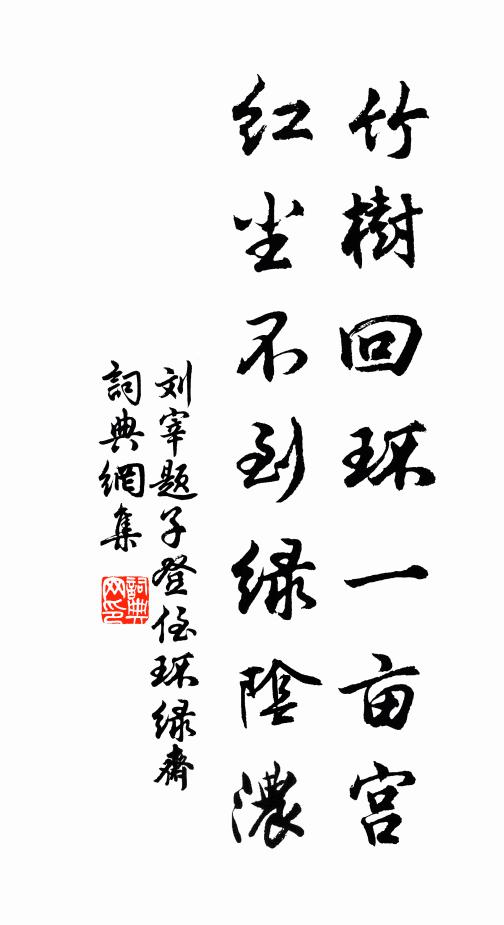 竹樹回环一亩宫
红尘不到绿陰濃
刘宰题子登侄环绿齋
詞典網集
詞典網印